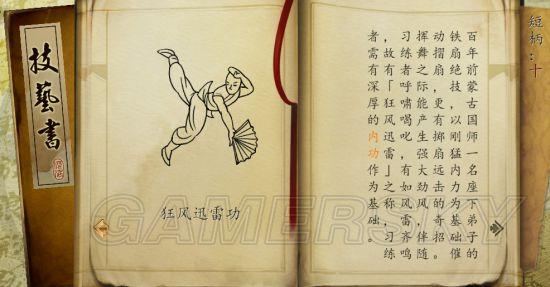 技藝書
狂风迅雷功
短柄：十
百年前蒙古国师一名座下弟子的
铁扇绝技，以刚猛内力为基础催
动摺扇，更有掷扇远击的奇招。
挥舞之际，能产生强大劲风，伴随
习练者呼啸喝叱，有如风雷齐鸣
，故有「狂风迅雷」之称。习练
者需有深厚的内功作为基础。
GAMERSKY